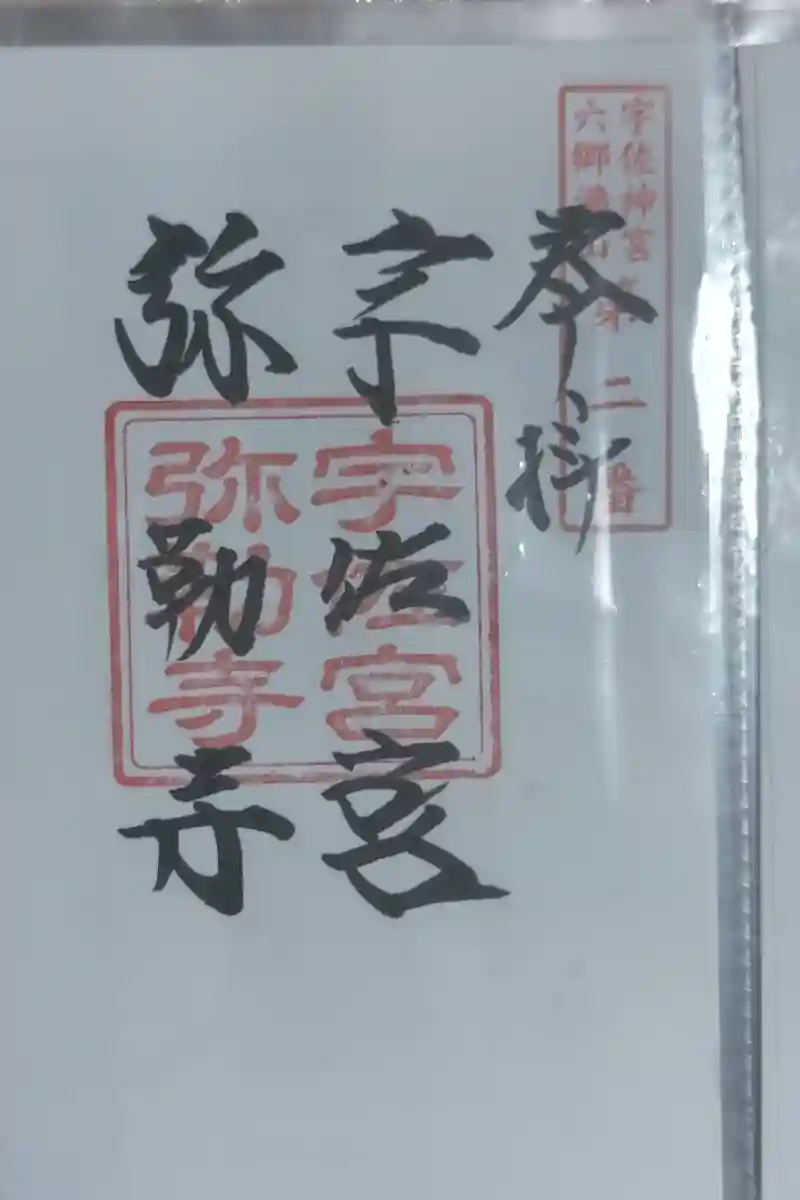 宇佐神宮
六郷満山 第二番
奉拝
宇佐宮
弥勒寺
宇佐宮
弥勒寺